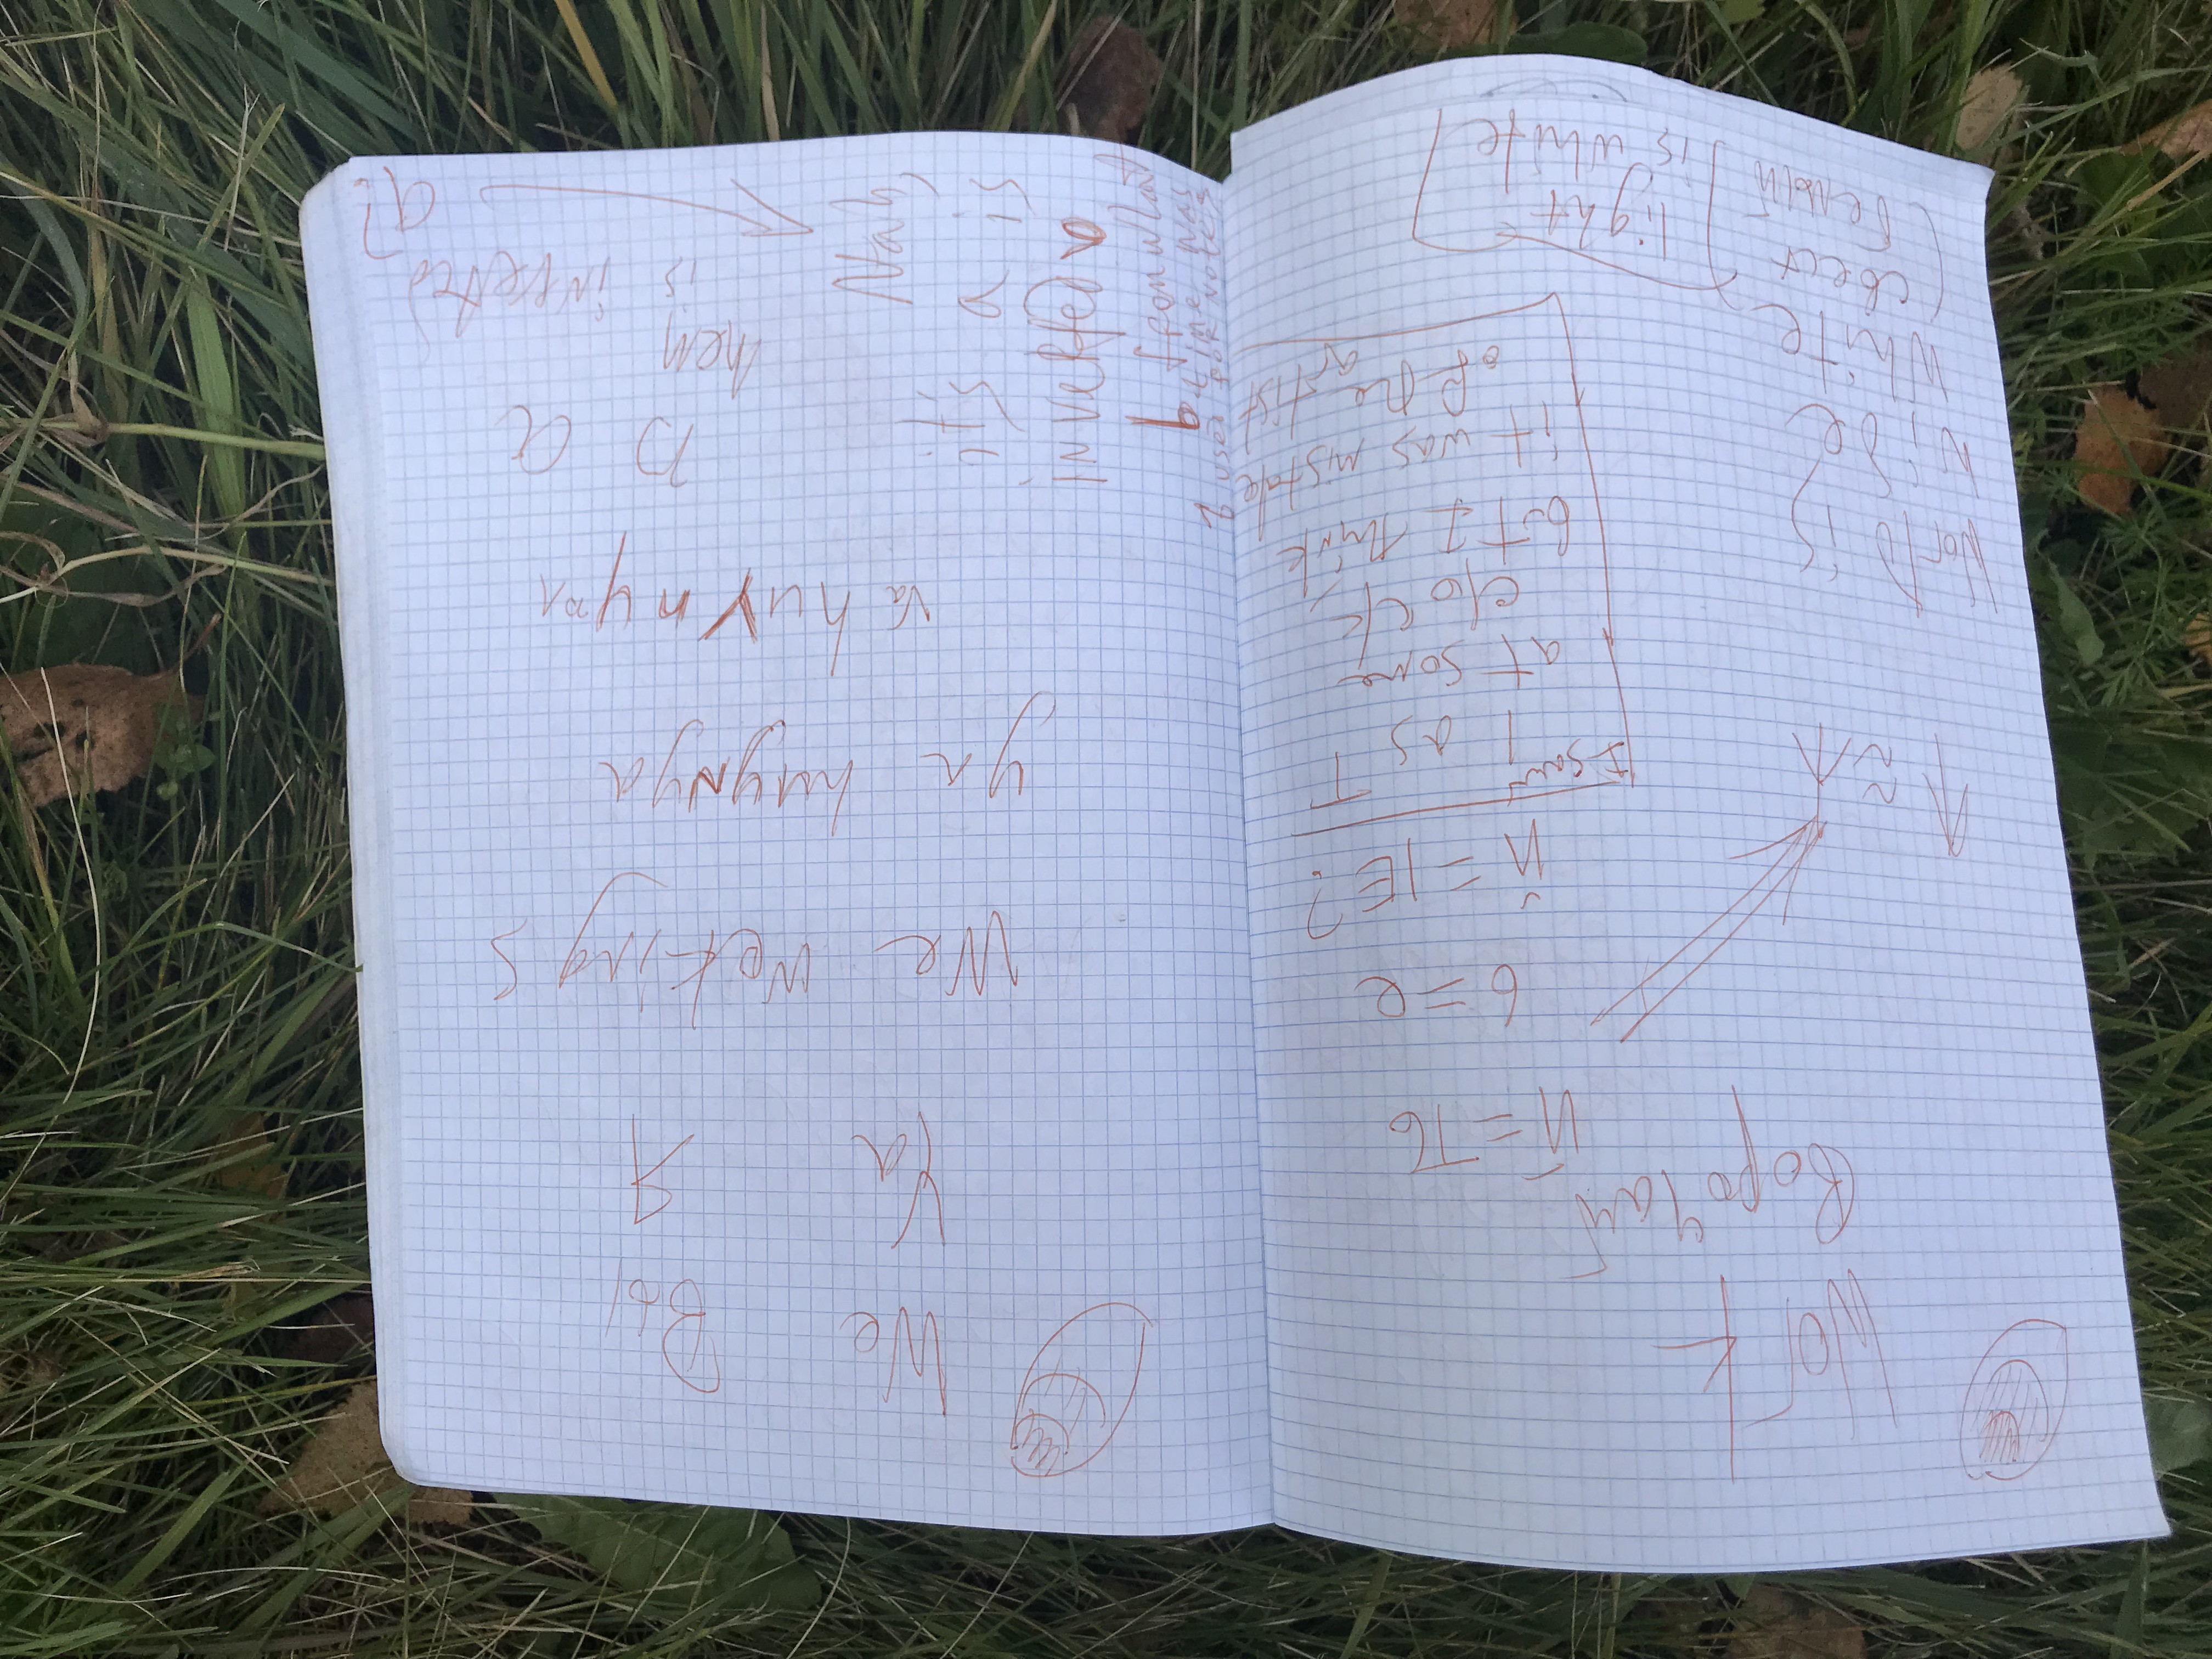 Work
ворочай
й = Т6
6 = e
й = IE?
I saw
1 as T
at some
clock,
but I think
it was mistake
of the
artist
World is
wide
White
(свест
белый)
light
is white
We Вы
Ya Я
We wekings
ya huynya
va huynya
a
then
is inverted
a?
Nah
it's a is
inverted v
b from what